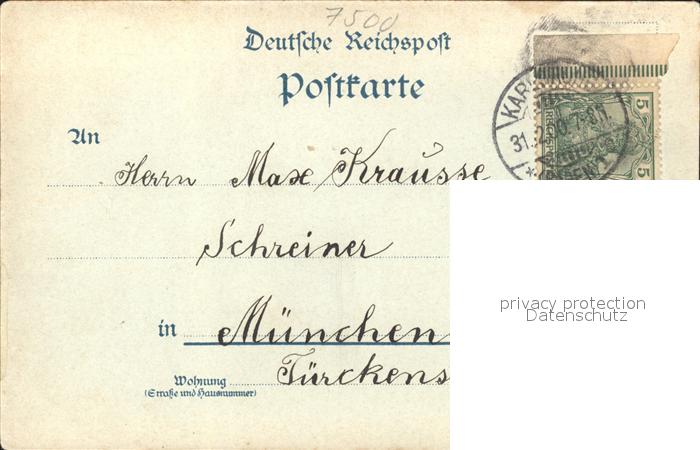 7500
Deutsche Reichspost
Postkarte
An
Herrn Max Krausse
Schreiner
in München
Türckens
Wohnung
(Straße und Hausnummer)
KAR
31.
7-8N.
*(BADEN)
5
5
REICHSPOST
privacy protection
Datenschutz